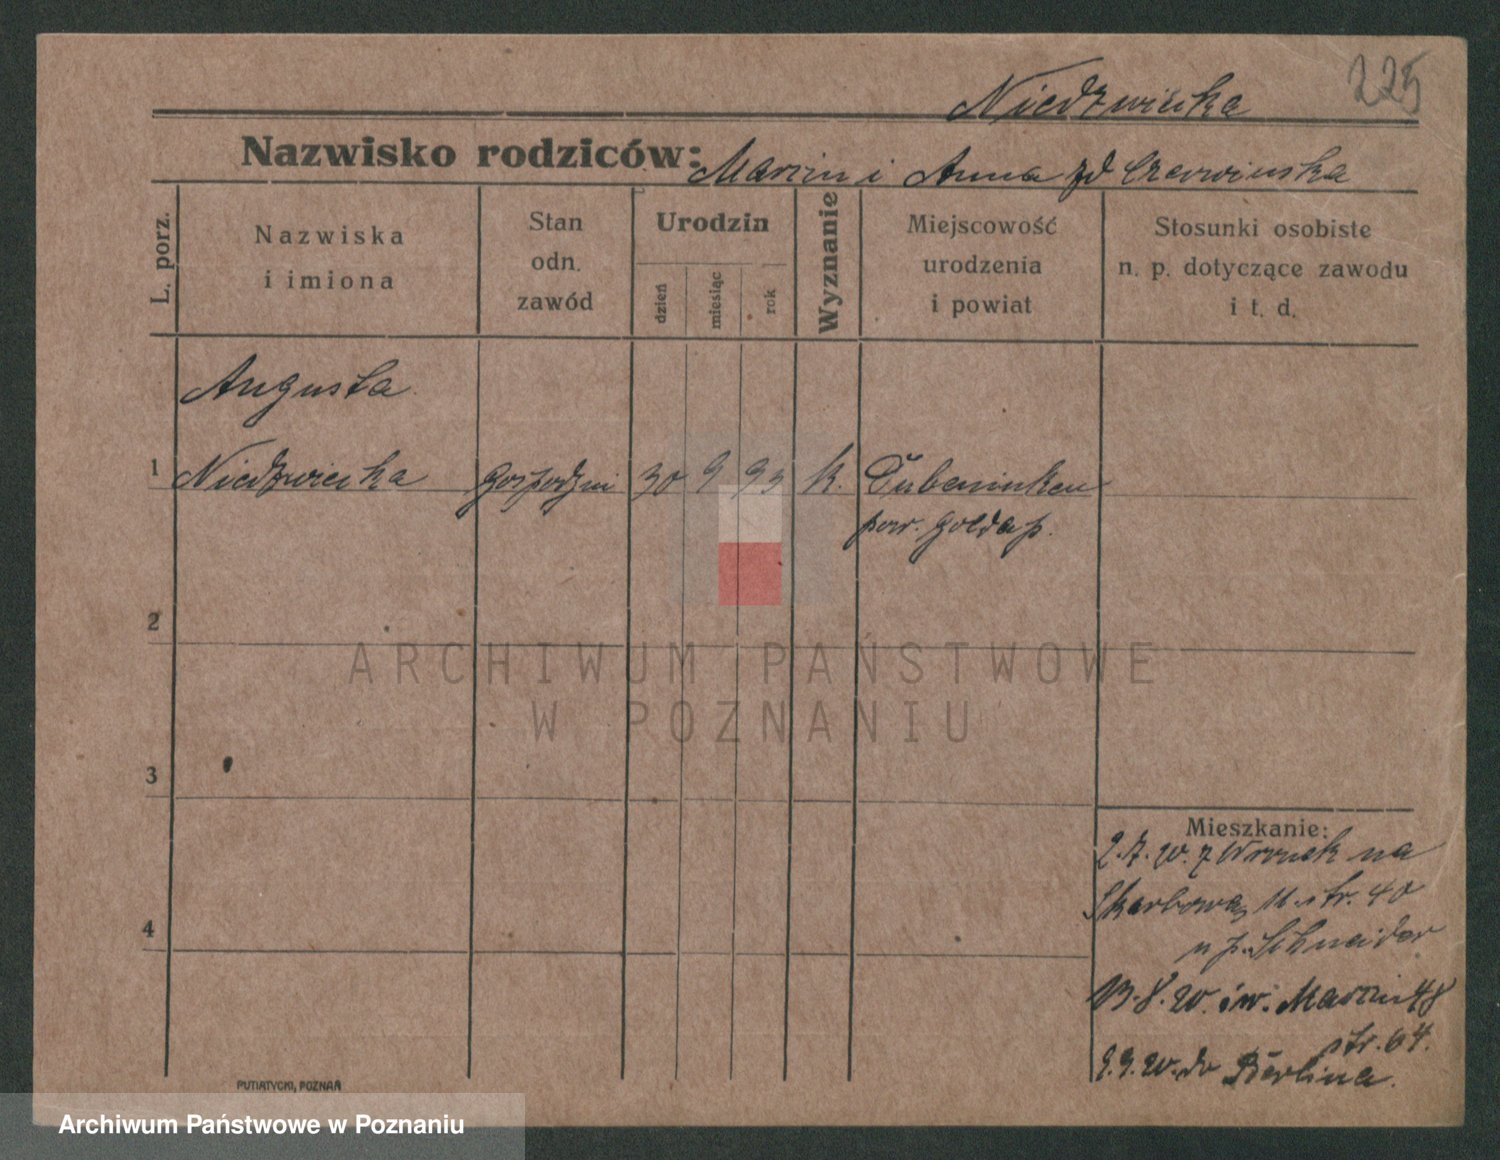 225
Niedzwiecka
Nazwisko rodziców: Marcin i Anna zd Czerwinska
L. porz.
Nazwiska
i imiona
Stan
odn.
zawód
Urodzin
dzień
miesiąc
rok
Wyznanie
Miejscowość
urodzenia
i powiat
Stosunki osobiste
n. p. dotyczące zawodu
i t. d.
Augusta
1 Niedzwiecka gospodyni 30 9 93 k.
pow. Goldap.
2
ARCHIWUM PAŃSTWOWE
W POZNANIU
3
4
Mieszkanie:
2.7.20. z Wronek na
Skarbowa str. 40
u p. Schneider
13.8.20. św. Marcin 48
str. 64.
9.20. do Berlina.
PUTIATYCKI, POZNAŃ
Archiwum Państwowe w Poznaniu